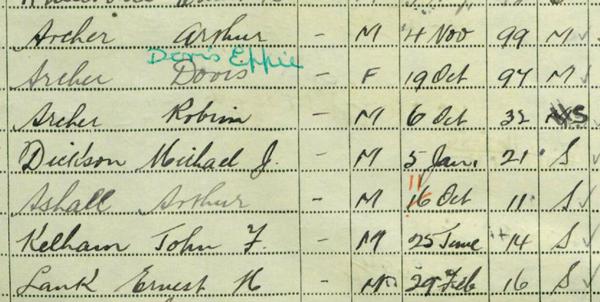 Archer Arthur - M 4 Nov 99 M
Doris Eppie
Archer Doris - F 19 Oct 97 M
Archer Robin - M 6 Oct 32 S
Dickson Michael J. - M 5 Jan. 21 S
11
Ashall Arthur - M 16 Oct 11 S
Kelham John F. - M 25 June 14 S
Lank Ernest H - M 29 Feb 16 S